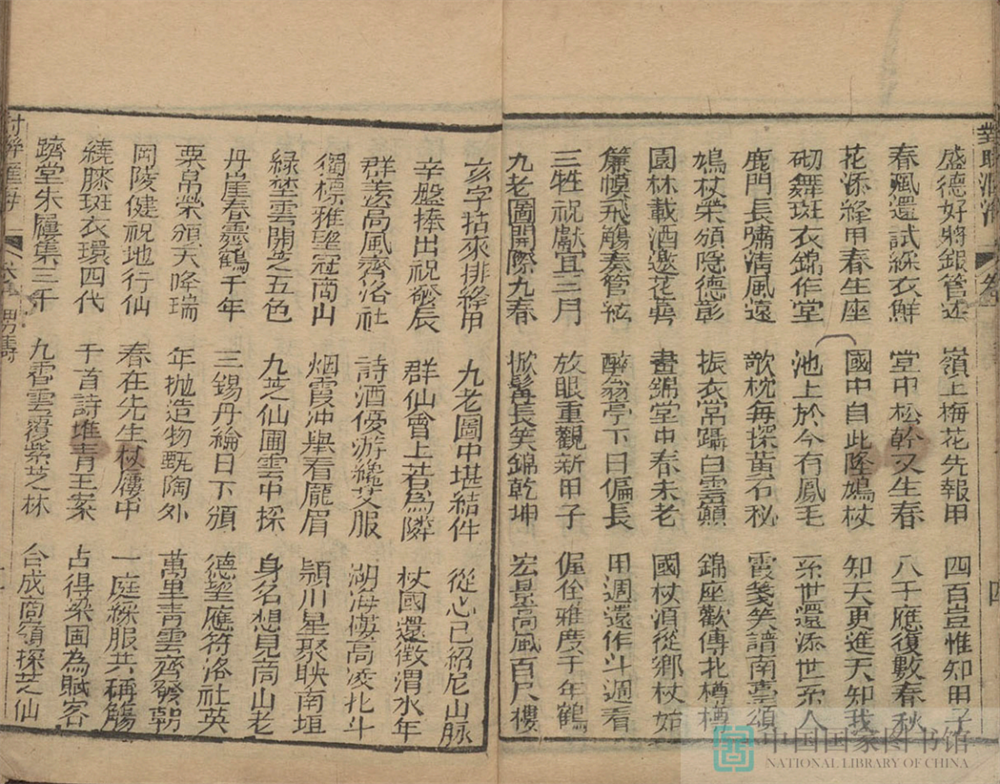 對聯滙海
盛德好將銀管述 嶺上梅花先報甲 四百豈惟知甲子
春風還試綵衣鮮 堂中松幹又生春 八千應復數春秋
花添絳甲春生座 國中自此隆鳩杖 知天更進天知我
砌舞斑衣錦作堂 池上於今有鳳毛 系世還添世系人
鹿門長嘯清風遠 欹枕每探黃石秘 霞箋笑譜南臺頌
鳩杖榮頒隱德彰 振衣常躡白雲顛 錦座歡傳北樽
園林載酒邀花 晝錦堂中春未老 國杖須從鄉杖始
簾幙飛觴奏管絃 醉翁亭下日偏長 用週還作斗週看
三牲祝獻宜三月 放眼重觀新甲子 偓佺雅度千年鶴
九老圖開際九春 掀髯長笑錦乾坤 宏景高風百尺樓
亥字拈來排絳甲 九老圖中堪結伴 從心已紹尼山脉
辛盤捧出祝發辰 群仙會上若為隣 杖國還徵渭水年
群羨高風齊洛社 詩酒優游纔艾服 湖海傳高凌北斗
獨標雅望冠商山 烟霞沖舉看龐眉 頴川星聚映南垣
綠埜雲開芝五色 九芝仙圃雲中採 身名想見商山老
丹崖春靄鶴千年 三錫丹綸日下頒 德望應符洛社英
粟帛榮頒天降瑞 年拋造物甄陶外 萬里青雲齊發軔
岡陵健祝地行仙 春在先生杖屨中 一庭綵服共稱觴
繞膝斑衣環四代 千首詩堆青玉案 占得梁園為賦客
躋堂朱履集三千 九霄雲護紫芝林 合成商嶺採芝仙
男壽
中国国家图书馆
NATIONAL LIBRARY OF CHINA